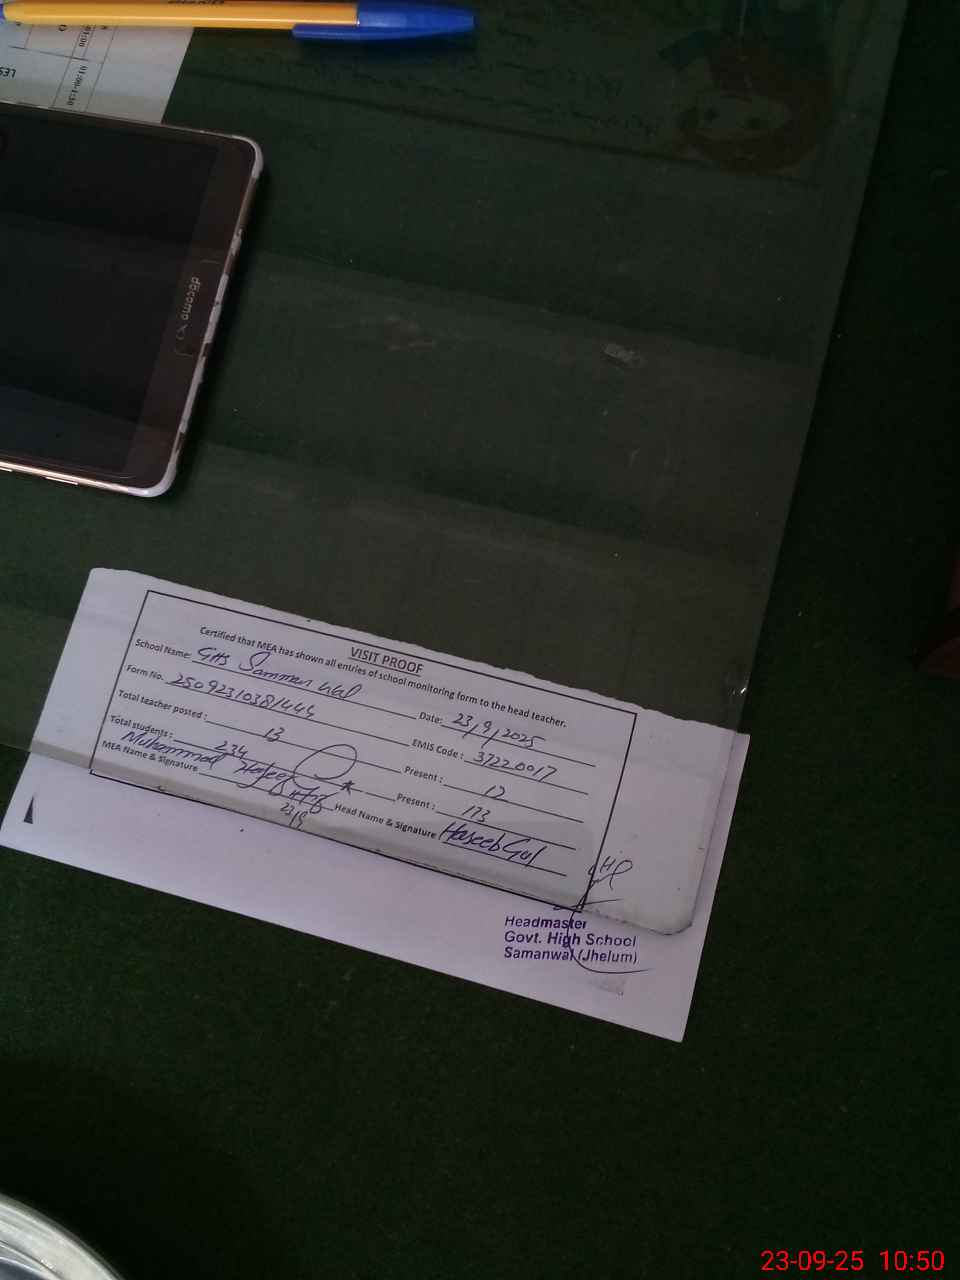 01:00
01:00-1:30
docomo
VISIT PROOF
Certified that MEA has shown all entries of school monitoring form to the head teacher.
School Name: GHS Samman wal Date: 23/9/2025
Form No. 25092310381444 EMIS Code: 37220017
Total teacher posted: 13 Present: 12
Total students: 234 Present: 173
MEA Name & Signature Muhammad Hafeez Head Name & Signature Haseeb Gul
23/9
Headmaster
Govt. High School
Samanwal (Jhelum)
23-09-25 10:50